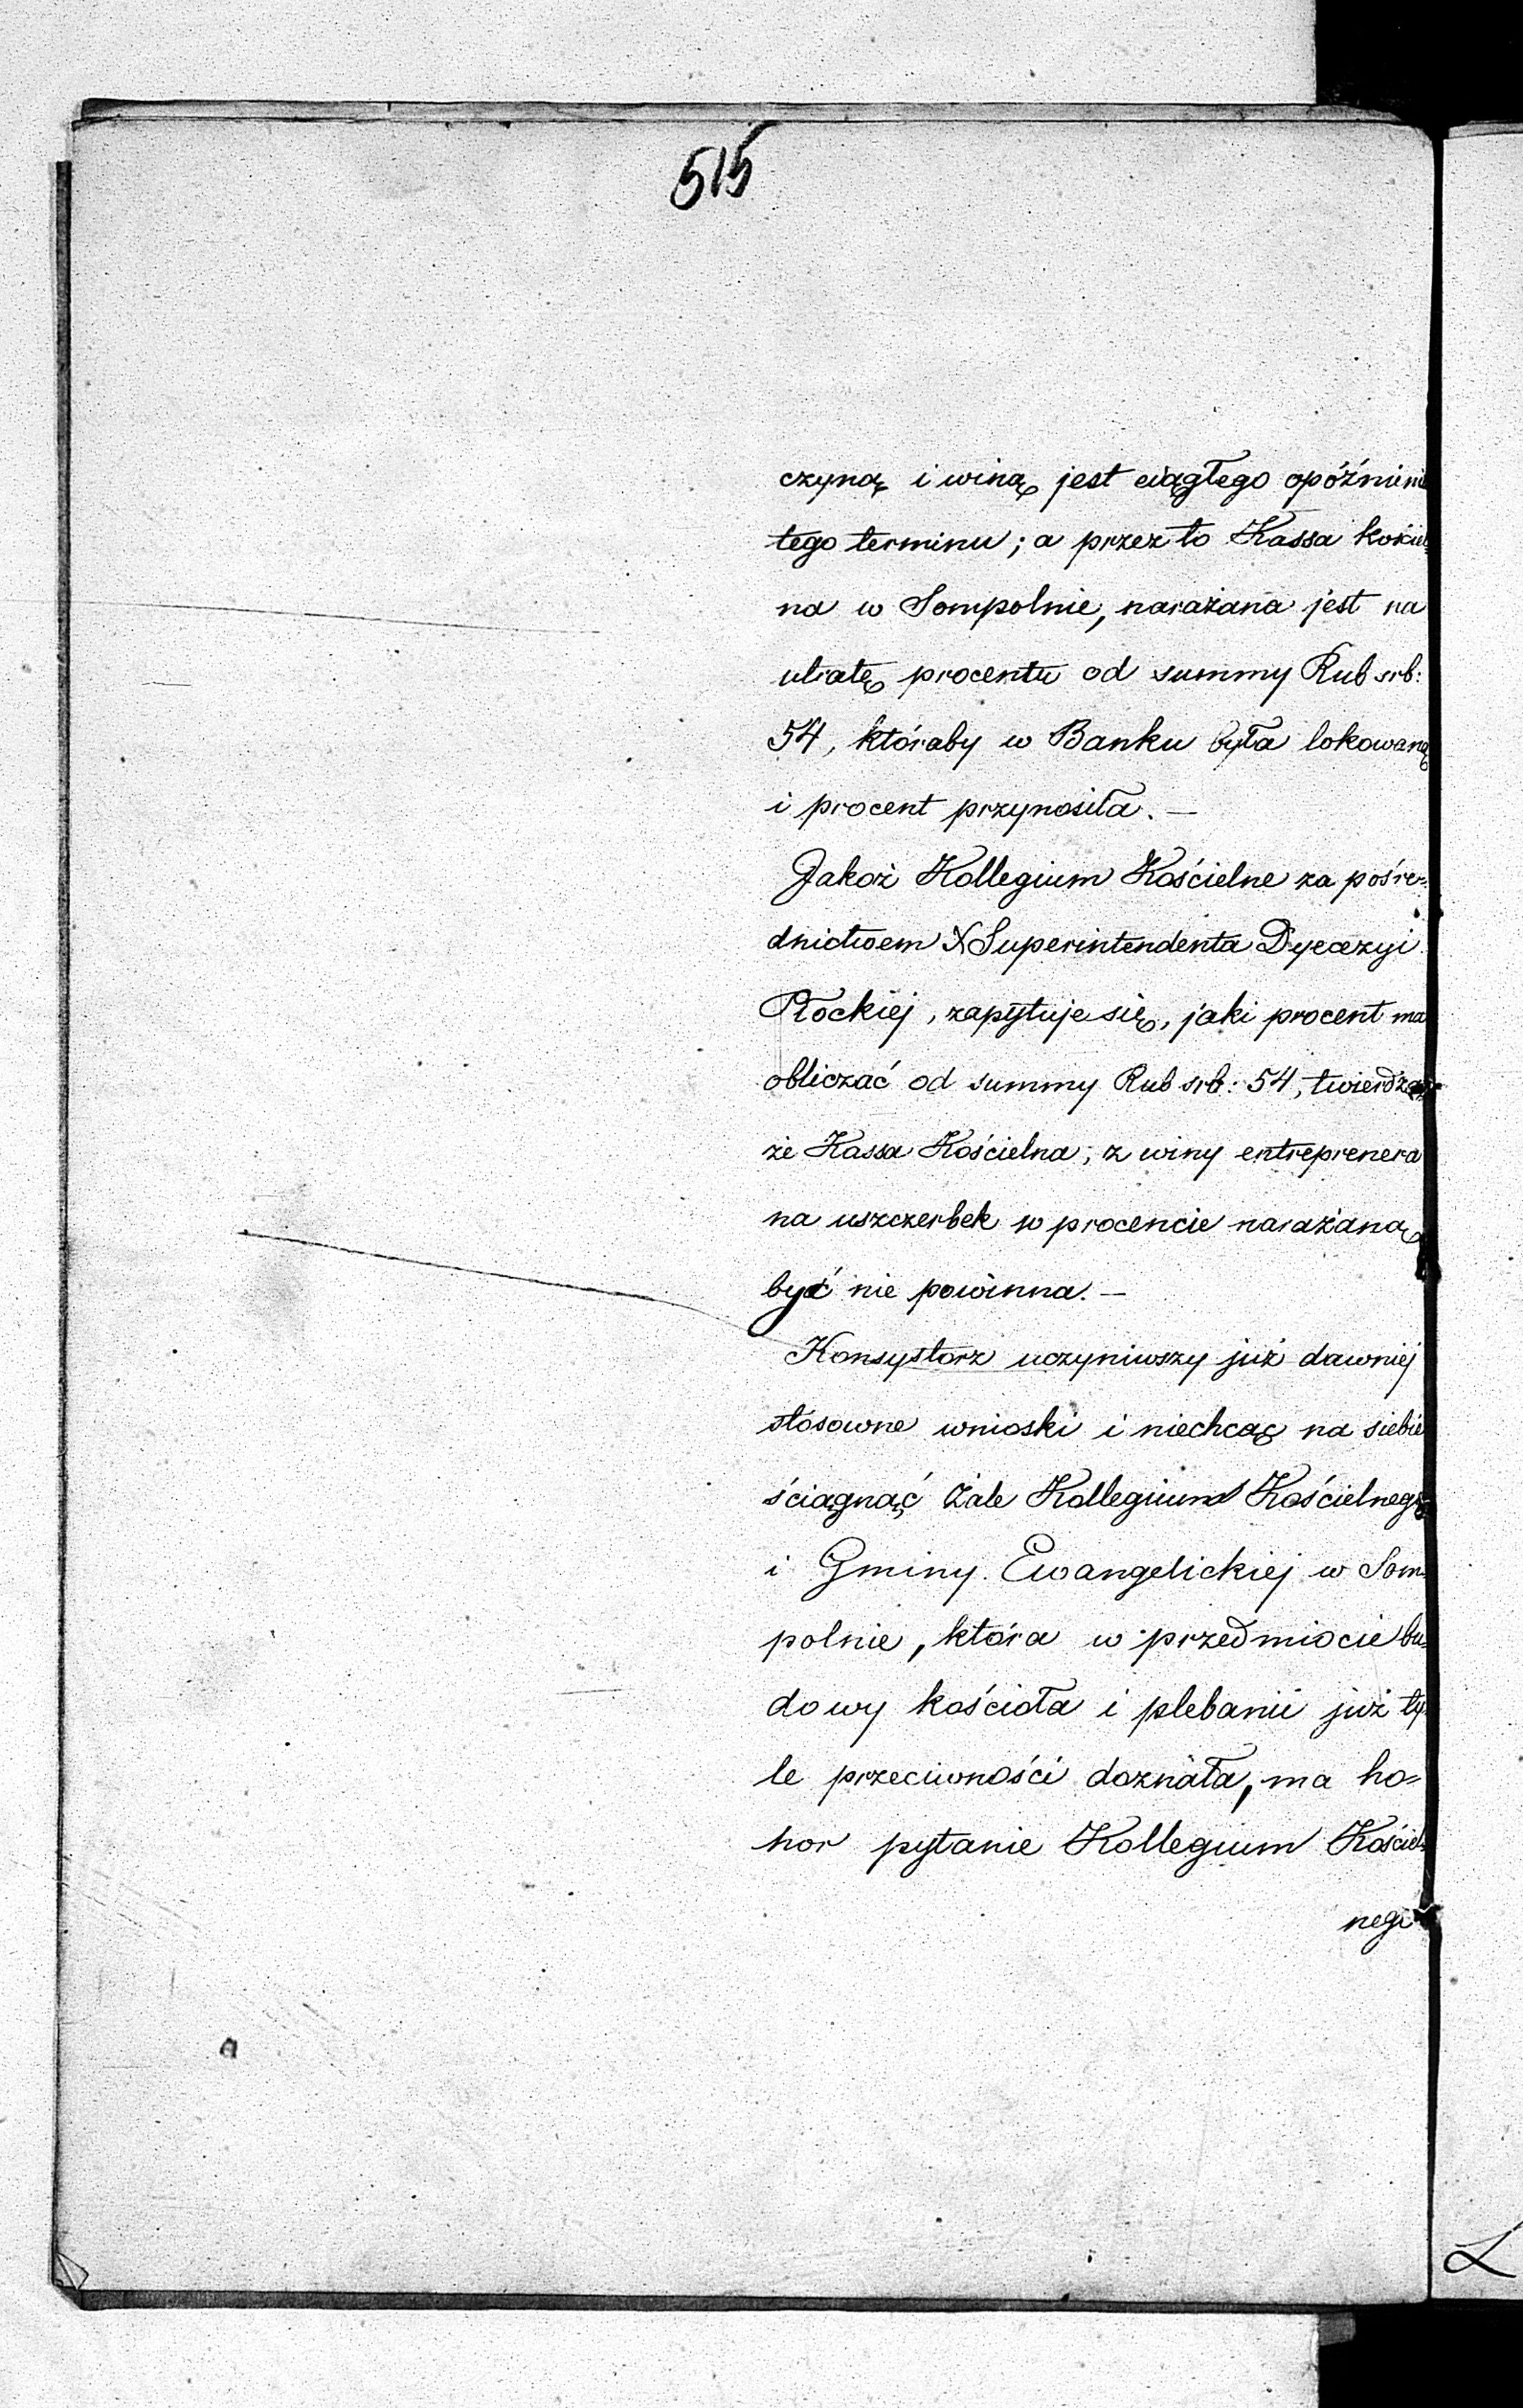 515
czyną i winą jest ciągłego opóźnieni
tego terminu; a przez to Kassa kościel-
na w Sompolnie, narażana jest na
utratę procentu od summy Rub srb:
54, któraby w Banku była lokowaną
i procent przynosiła. —
Jakoż Kollegium Kościelne za pośre-
dnictwem X Superintendenta Dyecezyi
Płockiej, zapytuje się, jaki procent ma
obliczać od summy Rub srb: 54, twierdząc
że Kassa Kościelna, z winy entreprenera
na uszczerbek w procencie narażaną
być nie powinna. —
Konsystorz uczyniwszy już dawniej
stosowne wnioski i niechcąc na siebie
ściągnąć żale Kollegium Kościelnego
i Gminy Ewangelickiej w Som-
polnie, która w przedmiocie bu-
dowy kościoła i plebanii już ty-
le przeciwności doznała, ma ho-
nor pytanie Kollegium Kościel-
nego